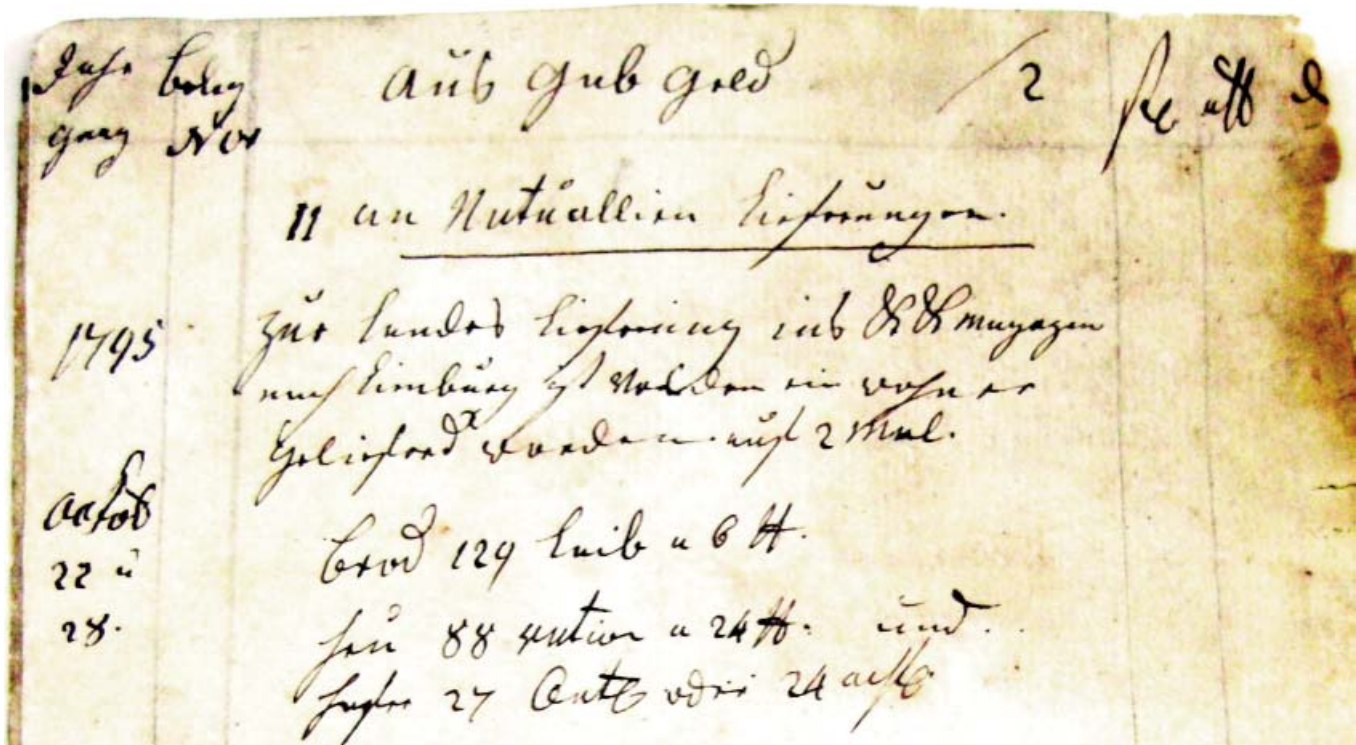 Jahr Beleg Aus Gab Geld 2
gang Nro
II an Natuallien Lieferungen.
1795 Zur Landes Lieferung ins KK Magazin
nach Limburg ist von den ein wohner
Gelieferd worden auf 2 Mal.
Octob
22 u Brod 129 Laib a 6 ℔.
28. Heu 88 Ration a 24 ℔. und.
Hafer 27 oder 24